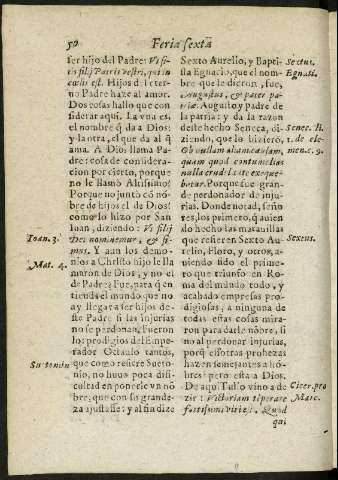 50
Feria sexta
ser hijo del Padre: Vt si-
tis filij Patris vestri, qui in
cœlis est. Hijos del eter-
no Padre haze al amor.
Dos cosas hallo que con
siderar aqui. La vna es,
el nombre q̃ da a Dios:
y la otra, el que da al q̃
ama. A Dios llama Pa-
dre: cosa de considera-
cion por cierto, porque
no le llamò Altissimo?
Porque no juntò cõ nõ-
bre de hijos el de Dios?
como lo hizo por San
Iuan, diziendo: Vt filij
Ioan. 3.
Dei nominemur, & si-
mus. Y aun los demo-
nios a Christo hijo le lla
Mat. 4.
maron de Dios, y no el
de Padre? Fue, para q̃ en
tiendas el mundo que no
ay llegar a ser hijos de-
ste Padre si las injurias
no se perdonan. Fueron
los prodigios del Empe-
rador Octauio tantos,
que como refiere Sueto-
Suetonin
nio, no huuo poca difi-
cultad en ponerle vn nõ
bre, que con su grande-
za ajustasse: y al fin dize
Sexto Aurelio, y Bapti-
Sextus.
sta Egnacio, que el nom-
Egnati.
bre que le dieron, fue,
Augustus, & pater pa-
triæ. Augusto y padre de
la patria: y da la razon
deste hecho Seneca, di-
Senec. li.
ziendo, que lo hizierõ,
1. de cle-
Ob nullam aliam causam,
men. c. 9.
quam quod contumelias
nulla crudelitate exeque-
batur. Porque fue gran-
de perdonador de inju-
rias. Donde notad, seño
res, los primero, q̃ auien
do hecho las marauillas
que refieren Sexto Au-
Sextus.
relio, Floro, y otros, a-
uiendo sido el primero
que triunfo en Ro-
ma del mundo todo, y
acabado empresas pro-
digiosas, a ninguna de
todas estas cosas mira-
ron para darle nõbre, si
no al perdonar injurias,
porq̃ essotras prohezas
hazen semejantes a hõ-
bres: pero esta a Dios.
De aqui Tulio vino a de
Cicer. pro
zir: Victoriam tẽperare
Marc.
fortissimi viri est. Quod
qui